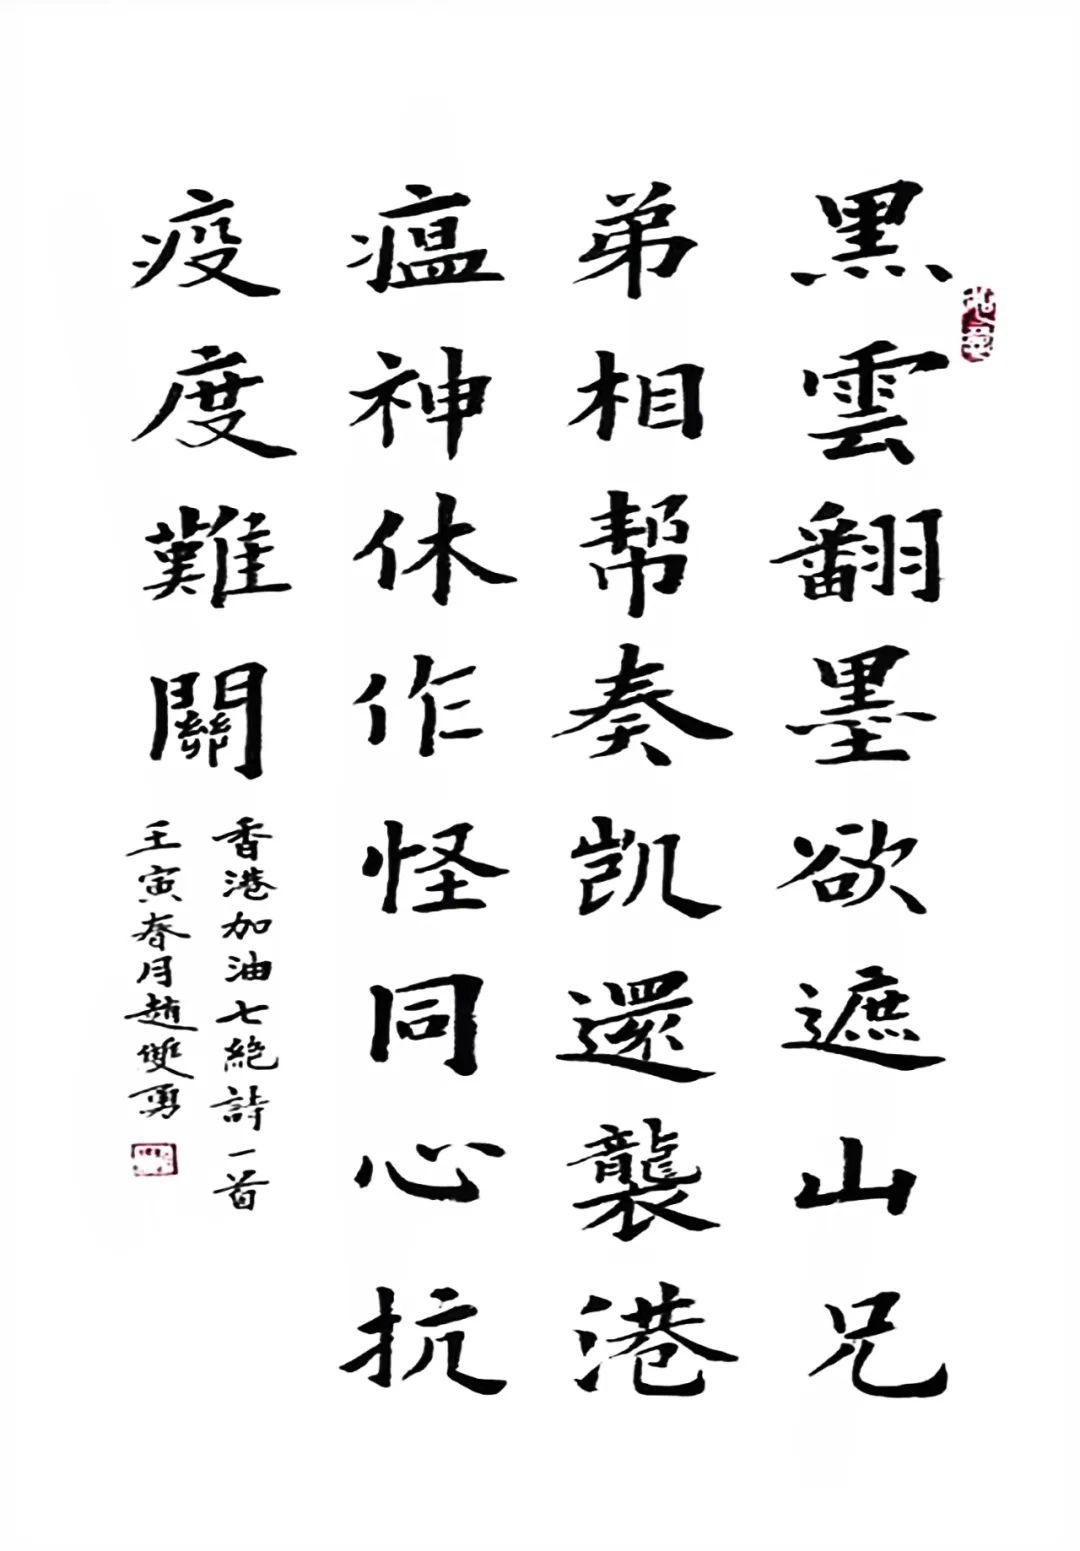 黑雲翻墨欲遮山兄
弟相帮奏凱還襲港
瘟神休作怪同心抗
疫度難關
香港加油七絶詩一首
壬寅春月趙雙勇